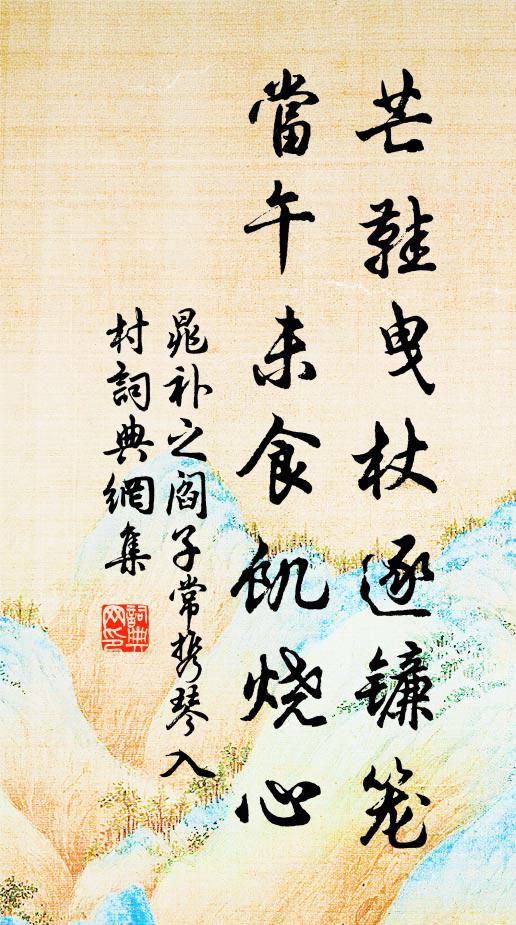 芒鞋曳杖逐镰笼
當午未食飢烧心
晁补之阎子常携琴入
村詞典網集
詞典